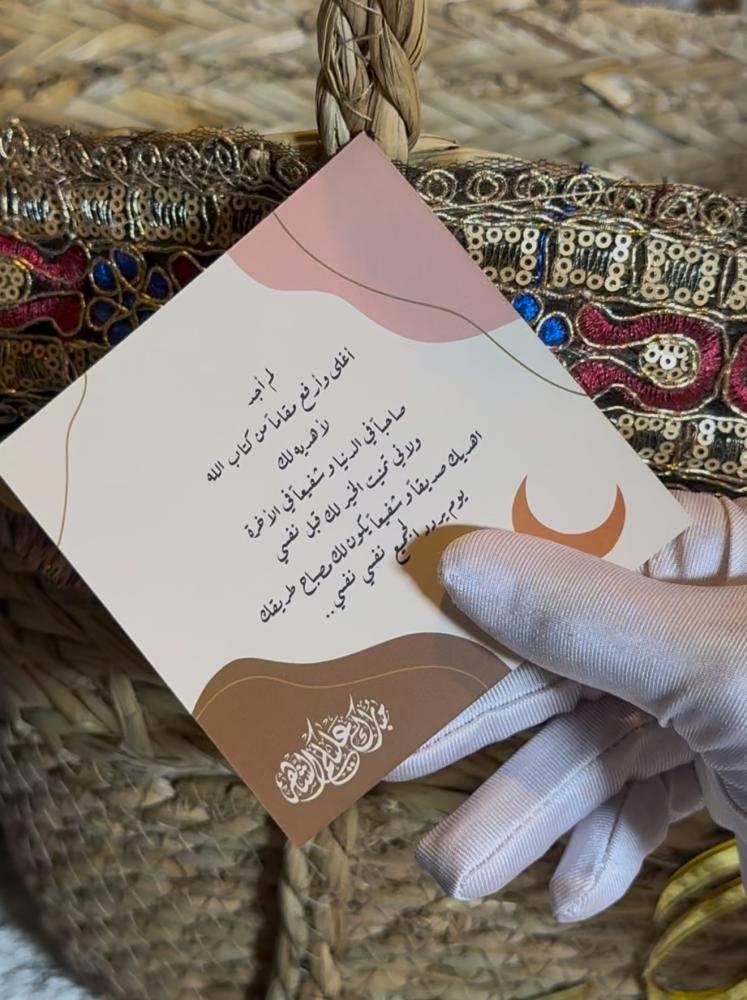 لم أجد
أغلى وأرفع مقاماً من كتاب الله
لأهديه لك
صاحباً في الدنيا وشفيعاً في الأخرة
ولاني تمنيت الخير لك قبل نفسي
اهديك صديقاً وشفيعاً يكون لك مصباح طريقك
يوم يردد الجميع نفسي نفسي..
مبارك عليكم الشهر